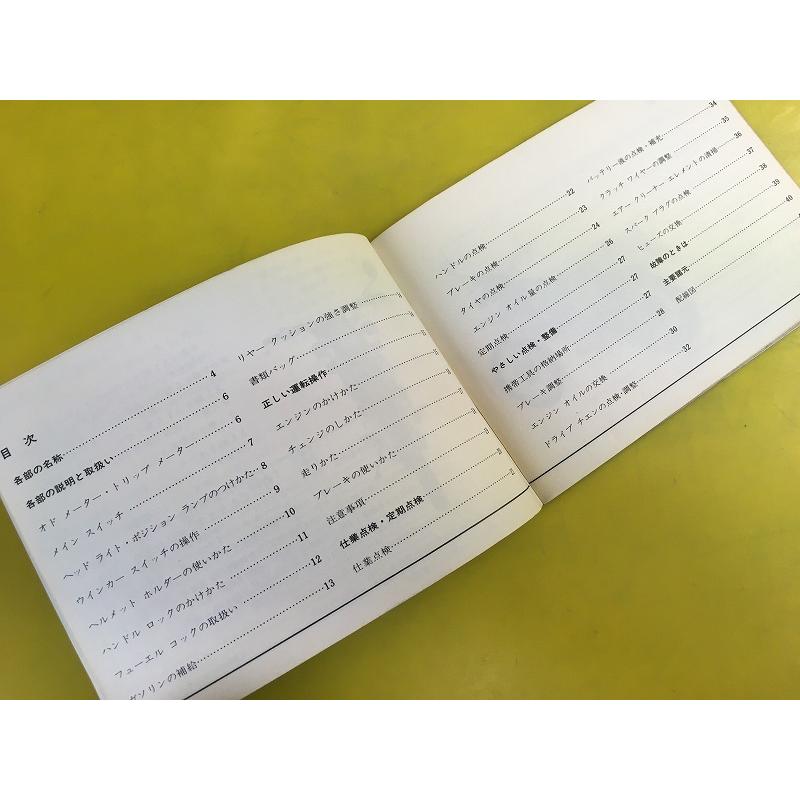 目 次
各部の名称 4
各部の説明と取扱い 6
オド メーター・トリップ メーター 6
メイン スイッチ 7
ヘッド ライト・ポジション ランプのつけかた 8
ウインカー スイッチの操作 9
ヘルメット ホルダーの使いかた 10
ハンドル ロックのかけかた 11
フューエル コックの取扱い 12
ガソリンの補給 13
リヤー クッションの強さ調整
書類バッグ
正しい運転操作
エンジンのかけかた
チェンジのしかた
走りかた
ブレーキの使いかた
注意事項
仕業点検・定期点検
仕業点検
ハンドルの点検 22
ブレーキの点検 23
タイヤの点検 24
エンジン オイル量の点検 26
定期点検 27
やさしい点検・整備 27
携帯工具の格納場所 27
ブレーキ調整 28
エンジン オイルの交換 30
ドライブ チエンの点検・調整 32
バッテリー液の点検・補充 34
クラッチ ワイヤーの調整 35
エアー クリーナー エレメントの清掃 36
スパーク プラグの点検 37
ヒューズの交換 38
故障のときは 39
主要諸元 40
配線図